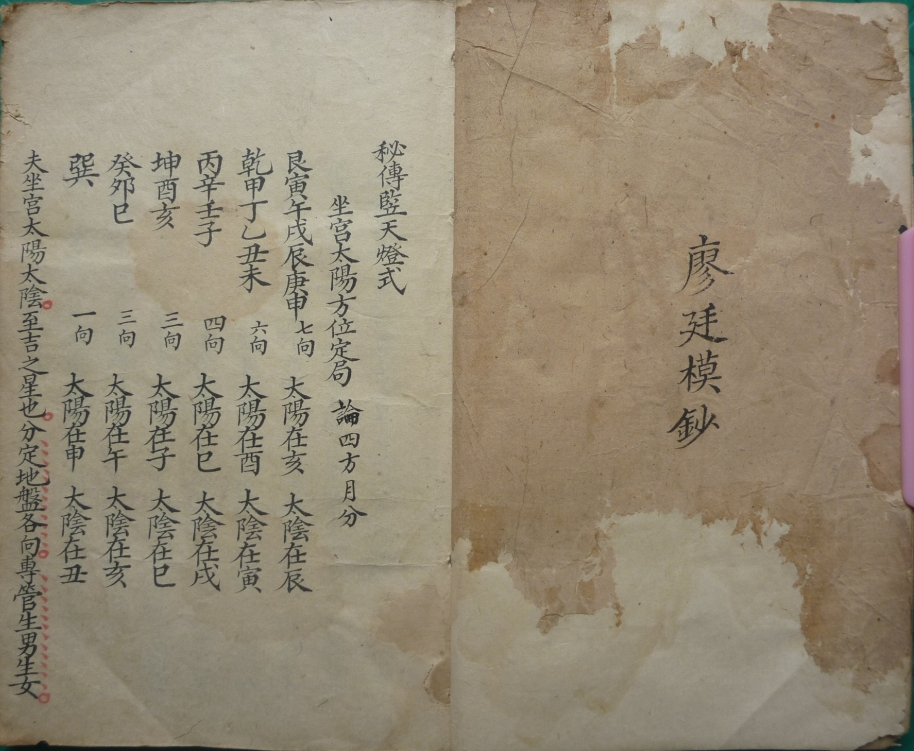 廖廷模鈔
秘傳竪天燈式
坐宮太陽方位定局 論四方月分
艮寅午戌辰庚申 七向 太陽在亥 太陰在辰
乾甲丁乙丑未 六向 太陽在酉 太陰在寅
丙辛壬子 四向 太陽在巳 太陰在戌
坤酉亥 三向 太陽在子 太陰在巳
癸卯巳 三向 太陽在午 太陰在亥
巽 一向 太陽在申 太陰在丑
夫坐宮太陽太陰。至吉之星也。分定地盤各向。專管生男生女。